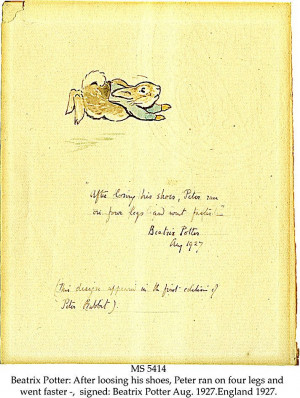 "After losing his shoes, Peter ran
on four legs and went faster"—
Beatrix Potter
Aug 1927
(This design appeared in the first edition of
Peter Rabbit).
MS 5414
Beatrix Potter: After loosing his shoes, Peter ran on four legs and
went faster -, signed: Beatrix Potter Aug. 1927.England 1927.